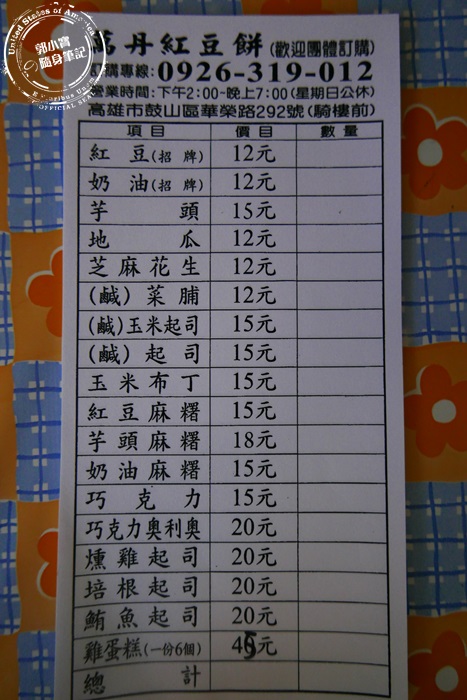 United States of America
郭小寶
隨身筆記
E Pluribus Unum
OFFICIAL
丹紅豆餅(歡迎團體訂購)
購專線:0926-319-012
營業時間:下午2:00-晚上7:00(星期日公休)
高雄市鼓山區華榮路292號(騎樓前)
項目 價目 數量
紅豆(招牌) 12元
奶油(招牌) 12元
芋頭 15元
地瓜 12元
芝麻花生 12元
(鹹)菜脯 12元
(鹹)玉米起司 15元
(鹹)起司 15元
玉米布丁 15元
紅豆麻糬 15元
芋頭麻糬 18元
奶油麻糬 15元
巧克力 15元
巧克力奧利奧 20元
燻雞起司 20元
培根起司 20元
鮪魚起司 20元
雞蛋糕(一份6個) 45元
總計